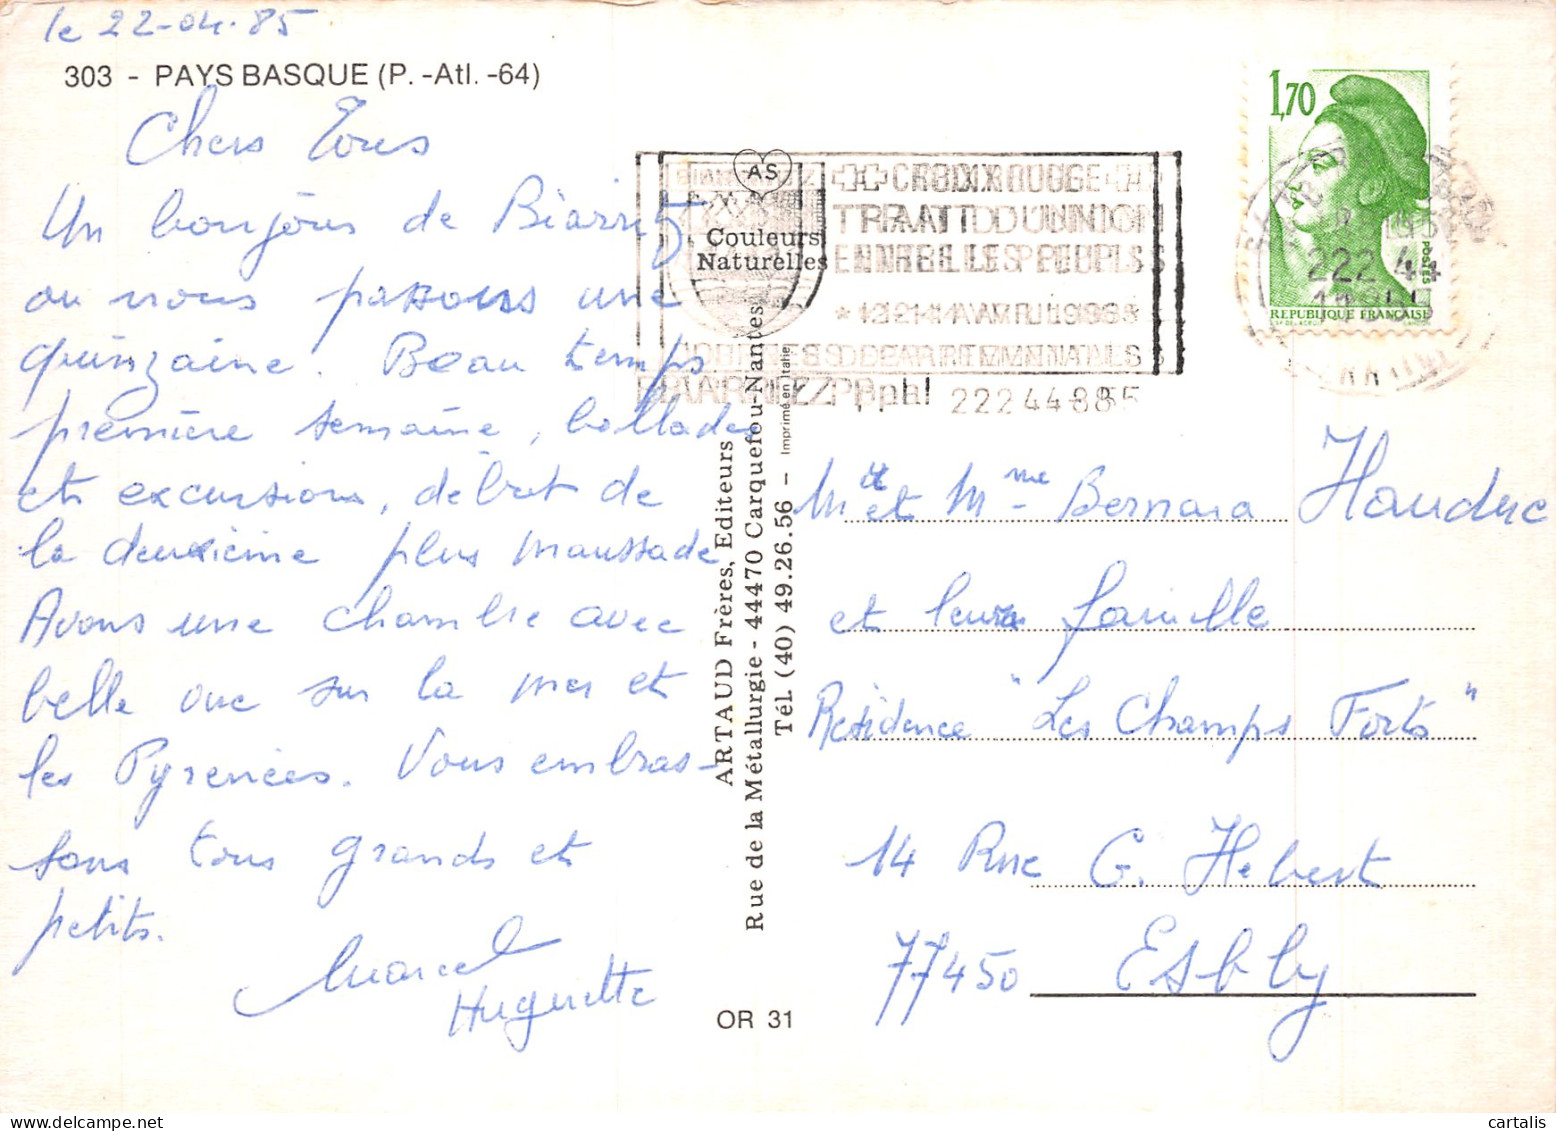 le 22-04-85
303 - PAYS BASQUE (P. -Atl. -64)
Chers Tous
Un bonjour de Biarritz
ou nous passons une
quinzaine. Beau temps
première semaine, ballades
et excursions, début de
la deuxième plus maussade
Avons une chambre avec
belle vue sur la mer et
les Pyrenées. Vous embras-
sons tous grands et
petits.
Marcel
Huguette
AS
Couleurs
Naturelles
ARTAUD Frères, Editeurs
Rue de la Métallurgie - 44470 Carquefou-Nantes
Tél. (40) 49.26.56 -
Imprimé en Italie
OR 31
CROIX ROUGE
TRAIT D UNION
ENTRE LES PEUPLES
BIARRITZ PPal
1,70
POSTES
REPUBLIQUE FRANÇAISE
et Mme Bernard Hauduc
et leurs famille
Résidence "Les Champs Forts"
14 Rue G. Hebert
77450 Esbly
cartalis